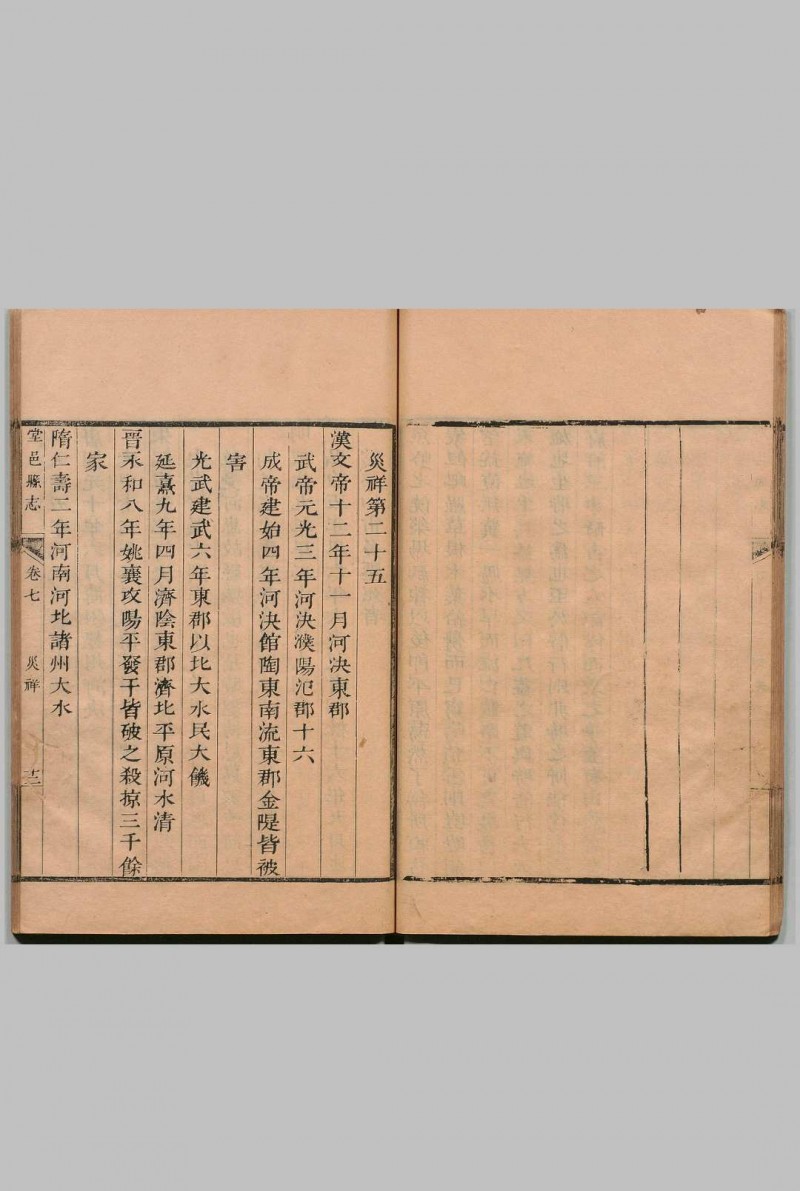 災祥第二十五
漢文帝十二年十一月河决東郡
武帝元光三年河決濮陽氾郡十六
成帝建始四年河決館陶東南流東郡金隄皆被
害
光武建武六年東郡以北大水民大饑
延熹九年四月濟陰東郡濟北平原河水清
晉永和八年姚襄攻陽平發干皆破之殺掠三千餘
家
隋仁壽三年河南河北諸州大水
堂邑縣志
卷七
災祥